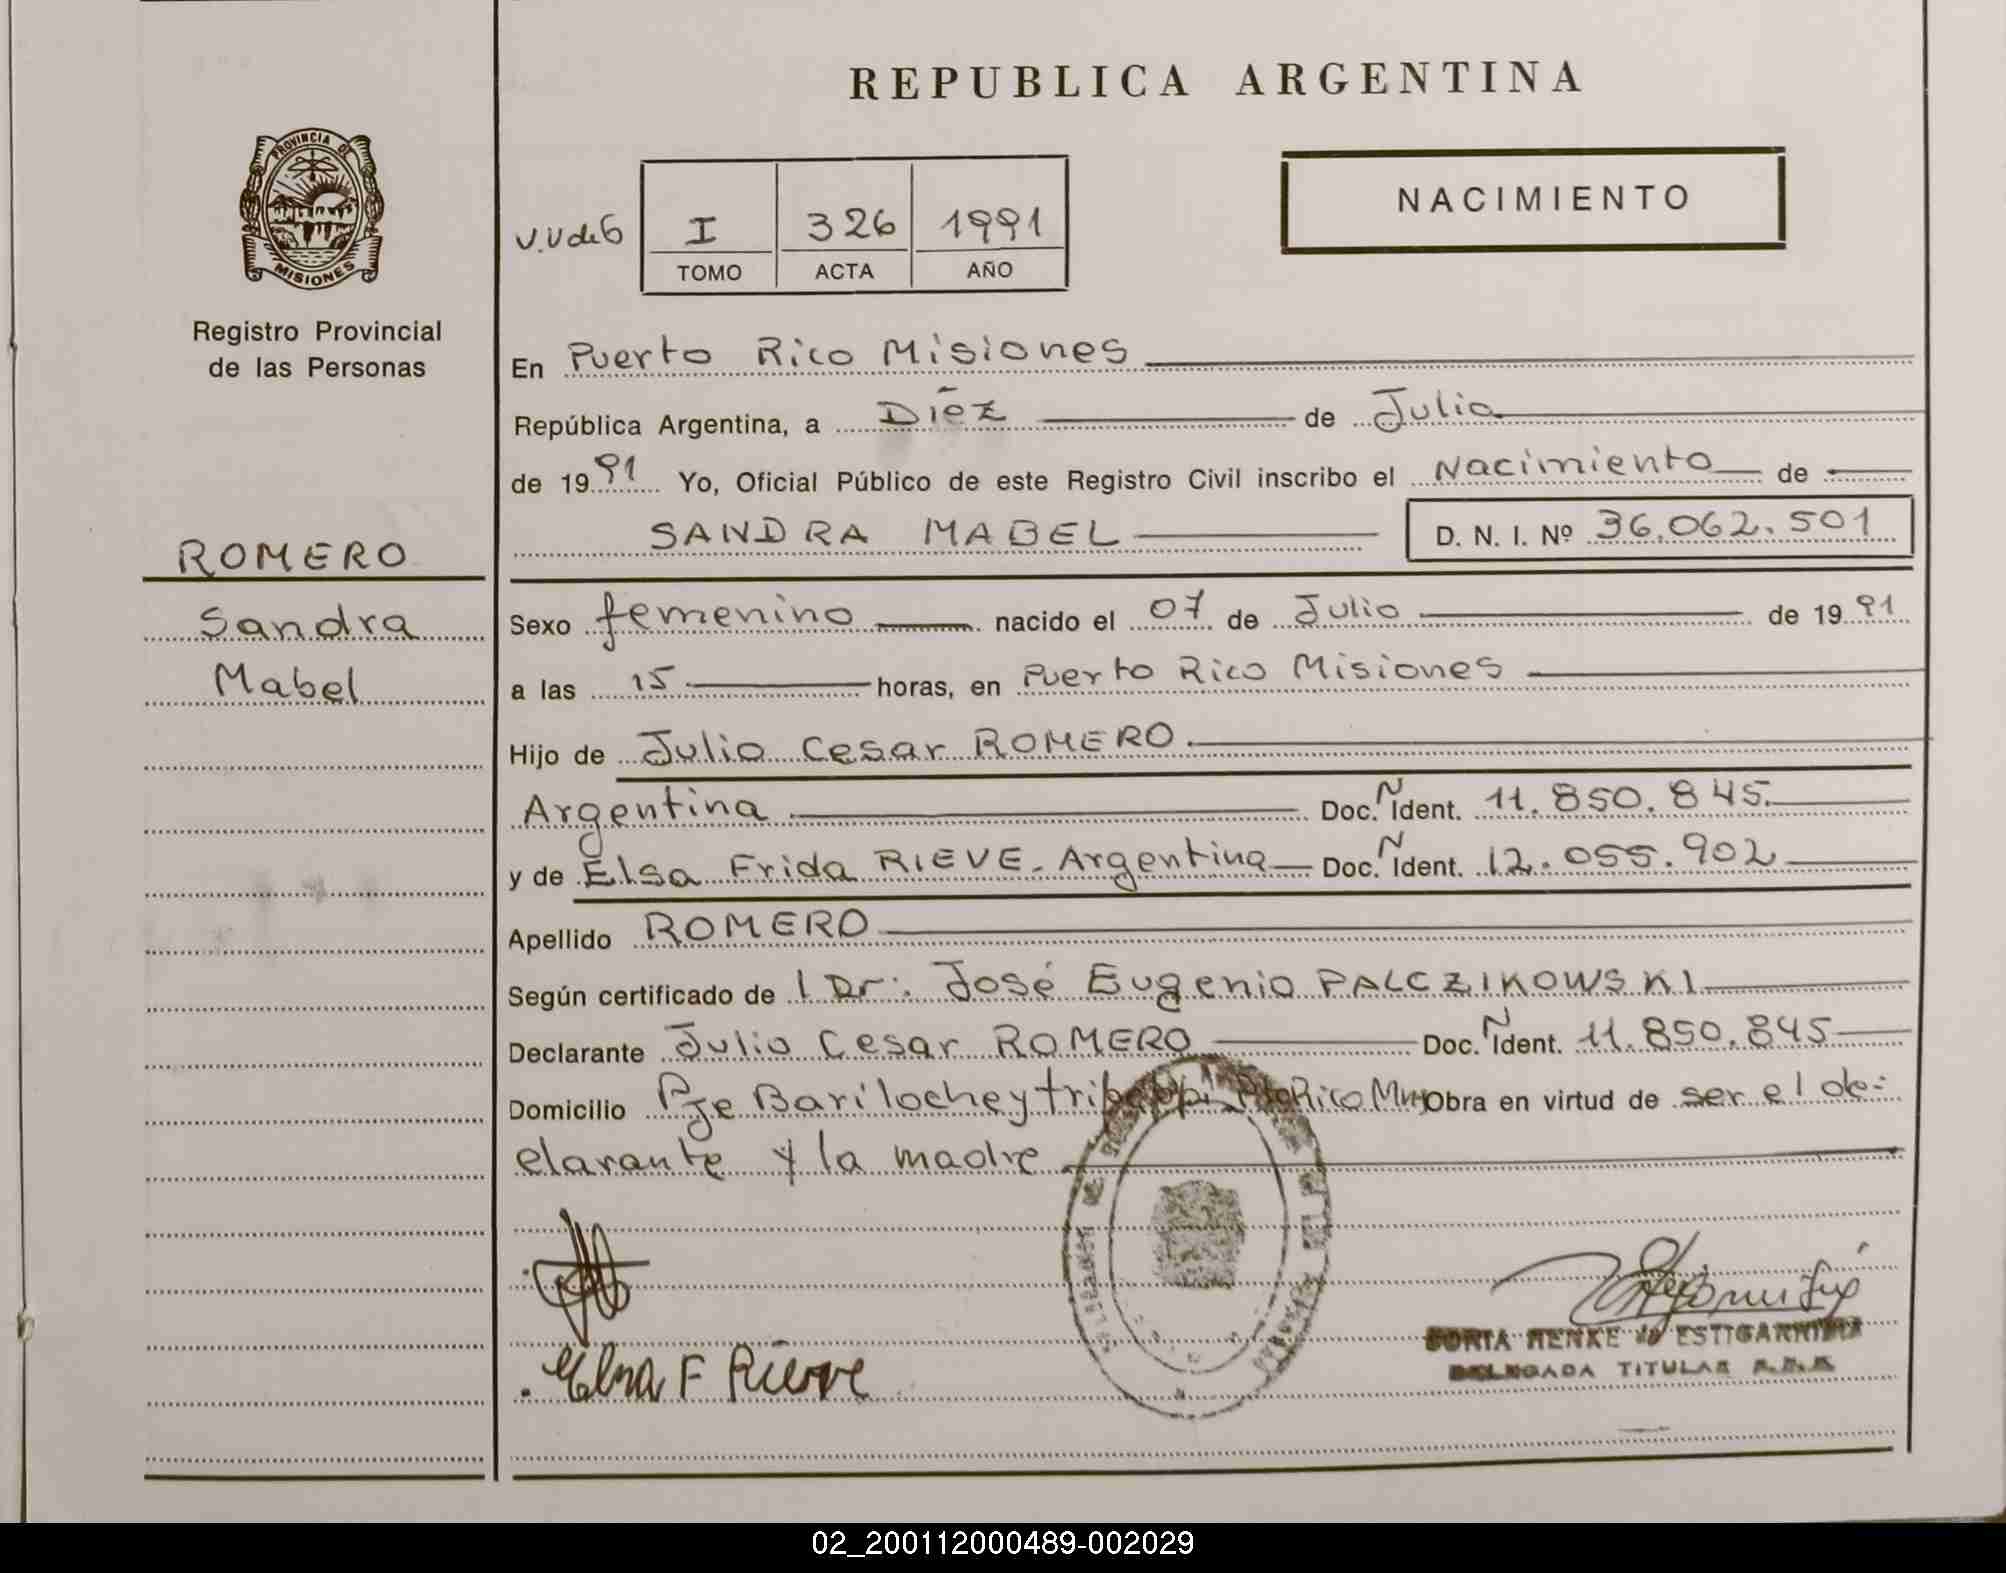 REPUBLICA ARGENTINA
PROVINCIA DE
MISIONES
Registro Provincial
de las Personas
V.V de G
I 326 1991
TOMO ACTA AÑO
NACIMIENTO
ROMERO
Sandra
Mabel
En Puerto Rico Misiones
República Argentina, a Diez de Julio
de 1991 Yo, Oficial Público de este Registro Civil inscribo el Nacimiento de
SANDRA MABEL D. N. I. Nº 36.062.501
Sexo femenino nacido el 07 de Julio de 1991
a las 15 horas, en Puerto Rico Misiones
Hijo de Julio Cesar ROMERO
Argentina Doc. Ñ Ident. 11.850.845.
y de Elsa Frida RIEVE - Argentina Doc. Ñ Ident. 12.055.902
Apellido ROMERO
Según certificado de l Dr: José Eugenio PALCZIKOWSKI
Declarante Julio Cesar ROMERO Doc. Ñ Ident. 11.850.845
Domicilio Pje Bariloche y Rico Obra en virtud de ser el de-
clarante y la madre
Elsa F Rieve
HENKE de ESTIGARRIBIA
DELEGADA TITULAR
02_200112000489-002029